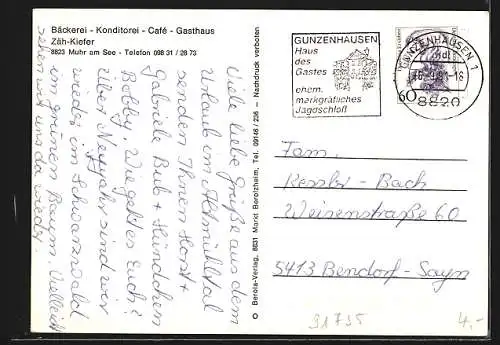 Bäckerei - Konditorei - Café - Gasthaus
Zäh-Kiefer
8823 Muhr am See - Telefon 098 31 / 28 73
Viele liebe Grüße aus dem
Urlaub im Altmühltal
senden Ihnen Horst +
Gabriele Bub + Hündchen
Bobby. Wie geht es Euch?
Über Neujahr sind wir
wieder im Schwarzwald
im grünen Baum. Vielleicht
sehen wir uns da wieder.
© Berola-Verlag, 8831 Markt Berolzheim, Tel. 09146 / 236 - Nachdruck verboten
GUNZENHAUSEN
Haus
des
Gastes
ehem.
markgräfliches
Jagdschloß
GUNZENHAUSEN 1
8820
60
Fam.
Kessler - Bach
Weisenstraße 60
5413 Bendorf - Sayn
91735
4,-